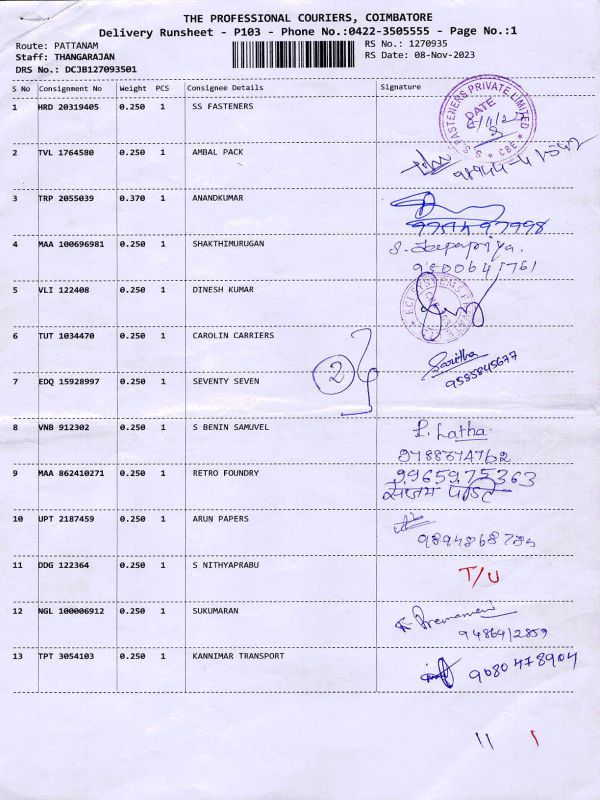 THE PROFESSIONAL COURIERS, COIMBATORE
Delivery Runsheet - P103 - Phone No.:0422-3505555 - Page No.:1
Route: PATTANAM
RS No.: 1270935
Staff: THANGARAJAN
RS Date: 08-Nov-2023
DRS No.: DCJB127093501
S No Consignment No Weight PCS Consignee Details Signature
1 HRD 20319405 0.250 1 SS FASTENERS
S.S FASTENERS PRIVATE LIMITED * CBE *
DATE
2 TVL 1764580 0.250 1 AMBAL PACK
3 TRP 2055039 0.370 1 ANANDKUMAR
4 MAA 100696981 0.250 1 SHAKTHIMURUGAN
5 VLI 122408 0.250 1 DINESH KUMAR
6 TUT 1034470 0.250 1 CAROLIN CARRIERS
Saritha
9585845677
2
7 EDQ 15928997 0.250 1 SEVENTY SEVEN
8 VNB 912302 0.250 1 S BENIN SAMUVEL
P. Latha
9 MAA 862410271 0.250 1 RETRO FOUNDRY
9965975363
10 UPT 2187459 0.250 1 ARUN PAPERS
11 DDG 122364 0.250 1 S NITHYAPRABU
T/U
12 NGL 100006912 0.250 1 SUKUMARAN
9486412859
13 TPT 3054103 0.250 1 KANNIMAR TRANSPORT
9080478904
11 1